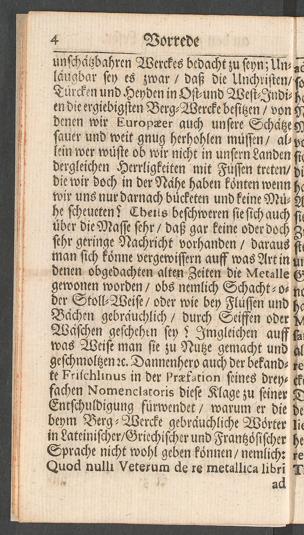 4 Vorrede
unschätzbahren Werckes bedacht zu seyn; Un-
läugbar sey es zwar / daß die Unchristen/
Türcken und Heyden in Ost- und West-Jndi-
en die ergiebigsten Berg-Wercke besitzen / von
denen wir Europæer auch unsere Schätze
sauer und weit gnug herhohlen müssen / al-
lein wer wüste ob wir nicht in unsern Landen
dergleichen Herrligkeiten mit Füssen treten/
die wir doch in der Nähe haben könten wenn
wir uns nur darnach bücketen und keine Mü-
he scheueten? Theils beschweren sie sich auch
über die Masse sehr / daß gar keine oder doch
sehr geringe Nachricht vorhanden / daraus
man sich könne vergewissern auff was Art in
denen obgedachten alten Zeiten die Metalle
gewonen worden / obs nemlich Schacht- o-
der Stoll-Weise / oder wie bey Flüssen und
Bächen gebräuchlich / durch Seiffen oder
Wäschen geschehen sey? Jmgleichen auff
was Weise man sie zu Nutze gemacht und
geschmoltzen ꝛc. Dannenhero auch der bekand-
te Frischlinus in der Præfation seines drey-
fachen Nomenclatoris diese Klage zu seiner
Entschuldigung fürwendet / warum er die
beym Berg-Wercke gebräuchliche Wörter
in Lateinischer/Griechischer und Frantzösischer
Sprache nicht wohl geben können / nemlich:
Quod nulli Veterum de re metallica libri
ad